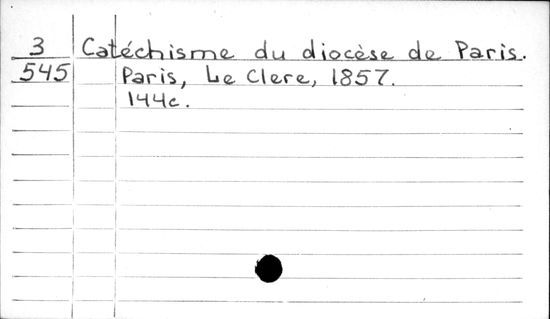 3 Catéchisme du diocèse de Paris.
545 Paris, Le Clere, 1857.
144c.